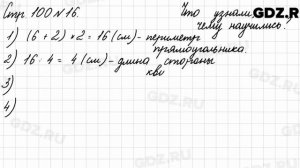 Стр 100 N 16.
Что узнали,
чему научились?
GDZ.RU
1) (6 + 2) · 2 = 16 (см) - периметр
прямоугольника.
2) 16 : 4 = 4 (см) - длина стороны
ква
3)
4)